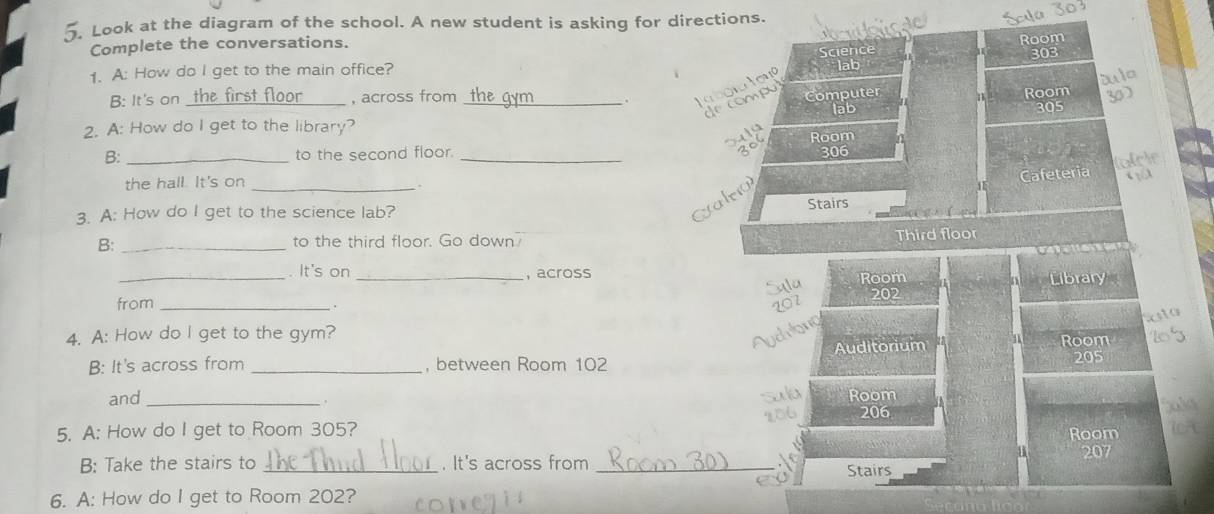 5. Look at the diagram of the school. A new student is asking for directions.
Complete the conversations.
1. A: How do I get to the main office?
B: It's on the first floor, across from the gym.
2. A: How do I get to the library?
B: ____________ to the second floor. ____________
the hall. It's on ____________.
3. A: How do I get to the science lab?
B: ____________ to the third floor. Go down
____________. It's on ____________, across
from ____________.
4. A: How do I get to the gym?
B: It's across from ____________, between Room 102
and ____________.
5. A: How do I get to Room 305?
B: Take the stairs to the Third floor. It's across from Room 303
6. A: How do I get to Room 202?
Sala 303
Science
lab
Room
303
de comput
Computer
lab
Room
305
aula
sala
306
Room
306
Cafeteria
Stairs
Third floor
Sala
202
Room
202
Library
Auditorio
Auditorium
Room
205
sala
205
Sala
206
Room
206
Room
207
Stairs
Second floor